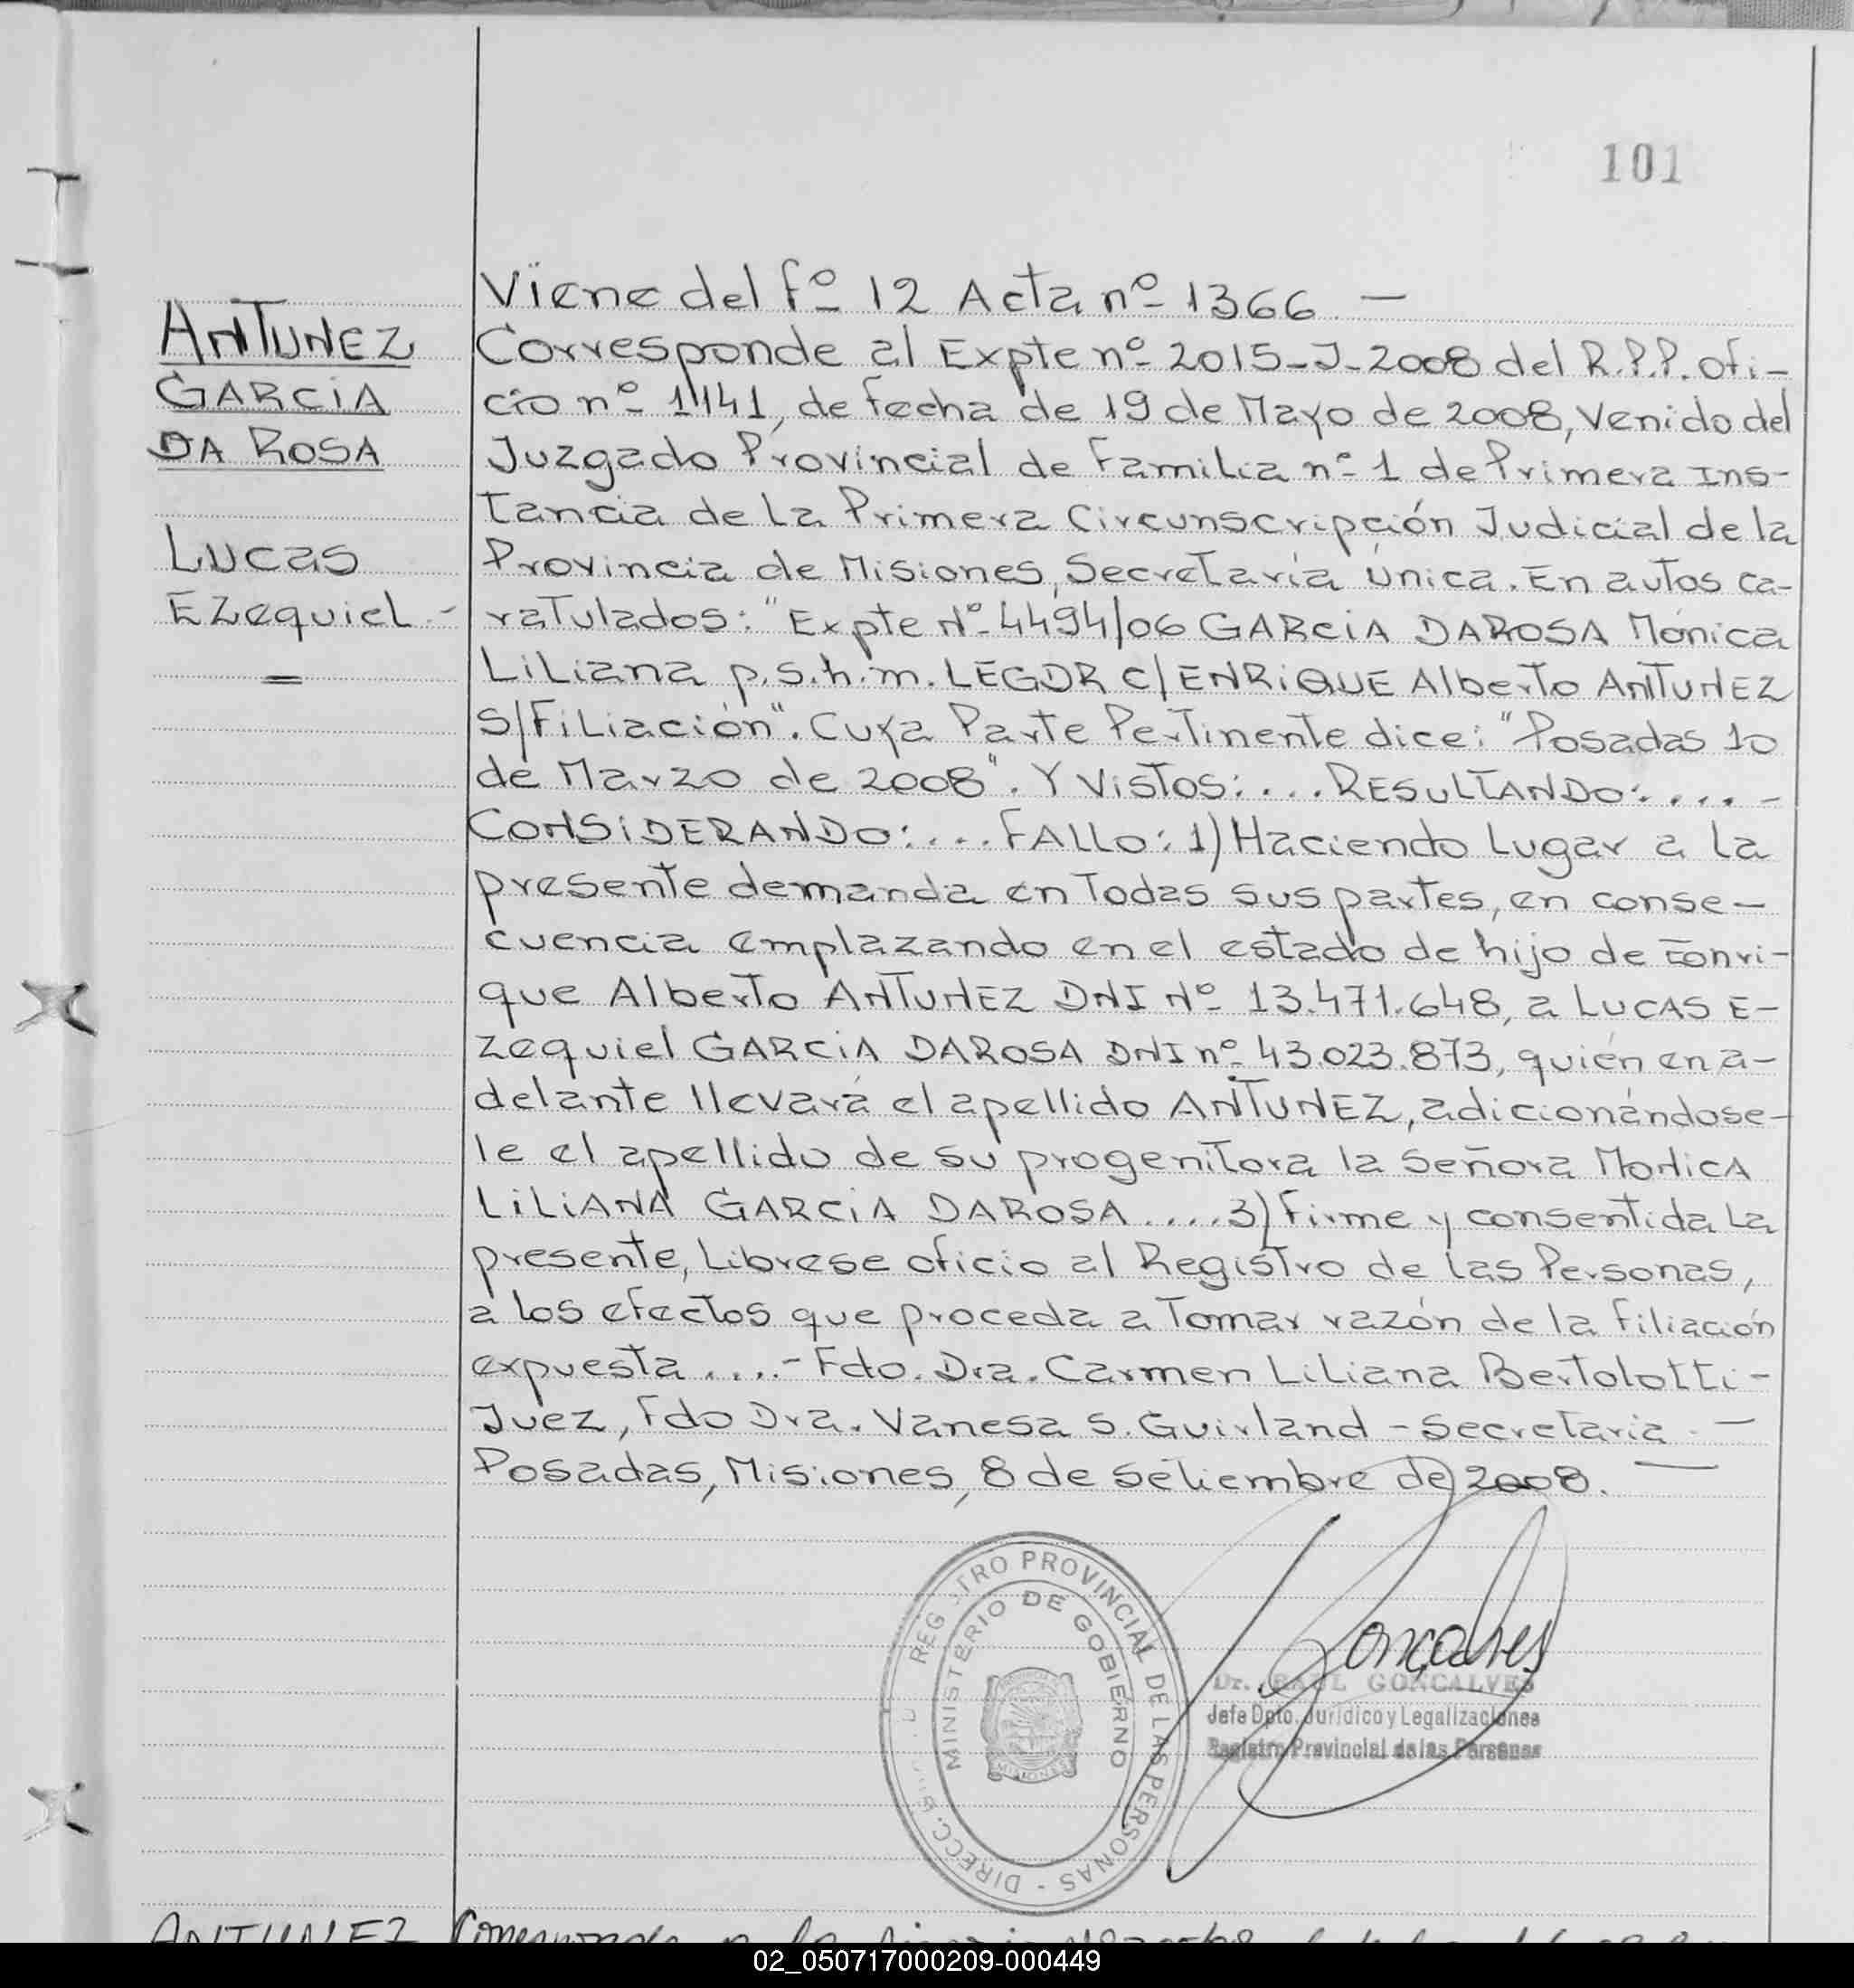 101
Viene del fº 12 Acta nº 1366 —
ANTUNEZ
GARCIA
DA ROSA
Lucas
Ezequiel -
=
Corresponde al Expte nº 2015-J-2008 del R.P.P. ofi-
cio nº 1141, de fecha de 19 de Mayo de 2008, Venido del
Juzgado Provincial de Familia nº 1 de Primera Ins-
tancia de la Primera Circunscripción Judicial de la
Provincia de Misiones, Secretaría única. En autos ca-
ratulados: "Expte Nº 4494/06 GARCIA DAROSA Mónica
Liliana p.s.h.m. LEGDR C/ ENRIQUE Alberto ANTUNEZ
S/Filiación". Cuya Parte Pertinente dice: "Posadas 10
de Marzo de 2008". Y Vistos: .... RESULTANDO: .... -
CONSIDERANDO: .... FALLO: 1) Haciendo Lugar a la
presente demanda en todas sus partes, en conse-
cuencia emplazando en el estado de hijo de Enri-
que Alberto ANTUNEZ DNI Nº 13.471.648, a LUCAS E-
zequiel GARCIA DAROSA DNI nº 43.023.873, quién en a-
delante llevará el apellido ANTUNEZ, adicionándose-
le el apellido de su progenitora la señora MONICA
LILIANA GARCIA DAROSA .... 3) Firme y consentida La
presente, Librese oficio al Registro de las Personas,
a los efectos que proceda a Tomar razón de la filiación
expuesta .... - Fdo. Dra. Carmen Liliana Bertolotti -
Juez, Fdo Dra. Vanesa S. Guirland - Secretaria. —
Posadas, Misiones, 8 de setiembre de 2008. —
REGISTRO PROVINCIAL DE LAS PERSONAS - DIRECC.
MINISTERIO DE GOBIERNO
MISIONES
Goncalves
Dr. RAUL GONCALVES
Jefe Dpto. Jurídico y Legalizaciones
Registro Provincial de las Personas
ANTUNEZ
02_050717000209-000449